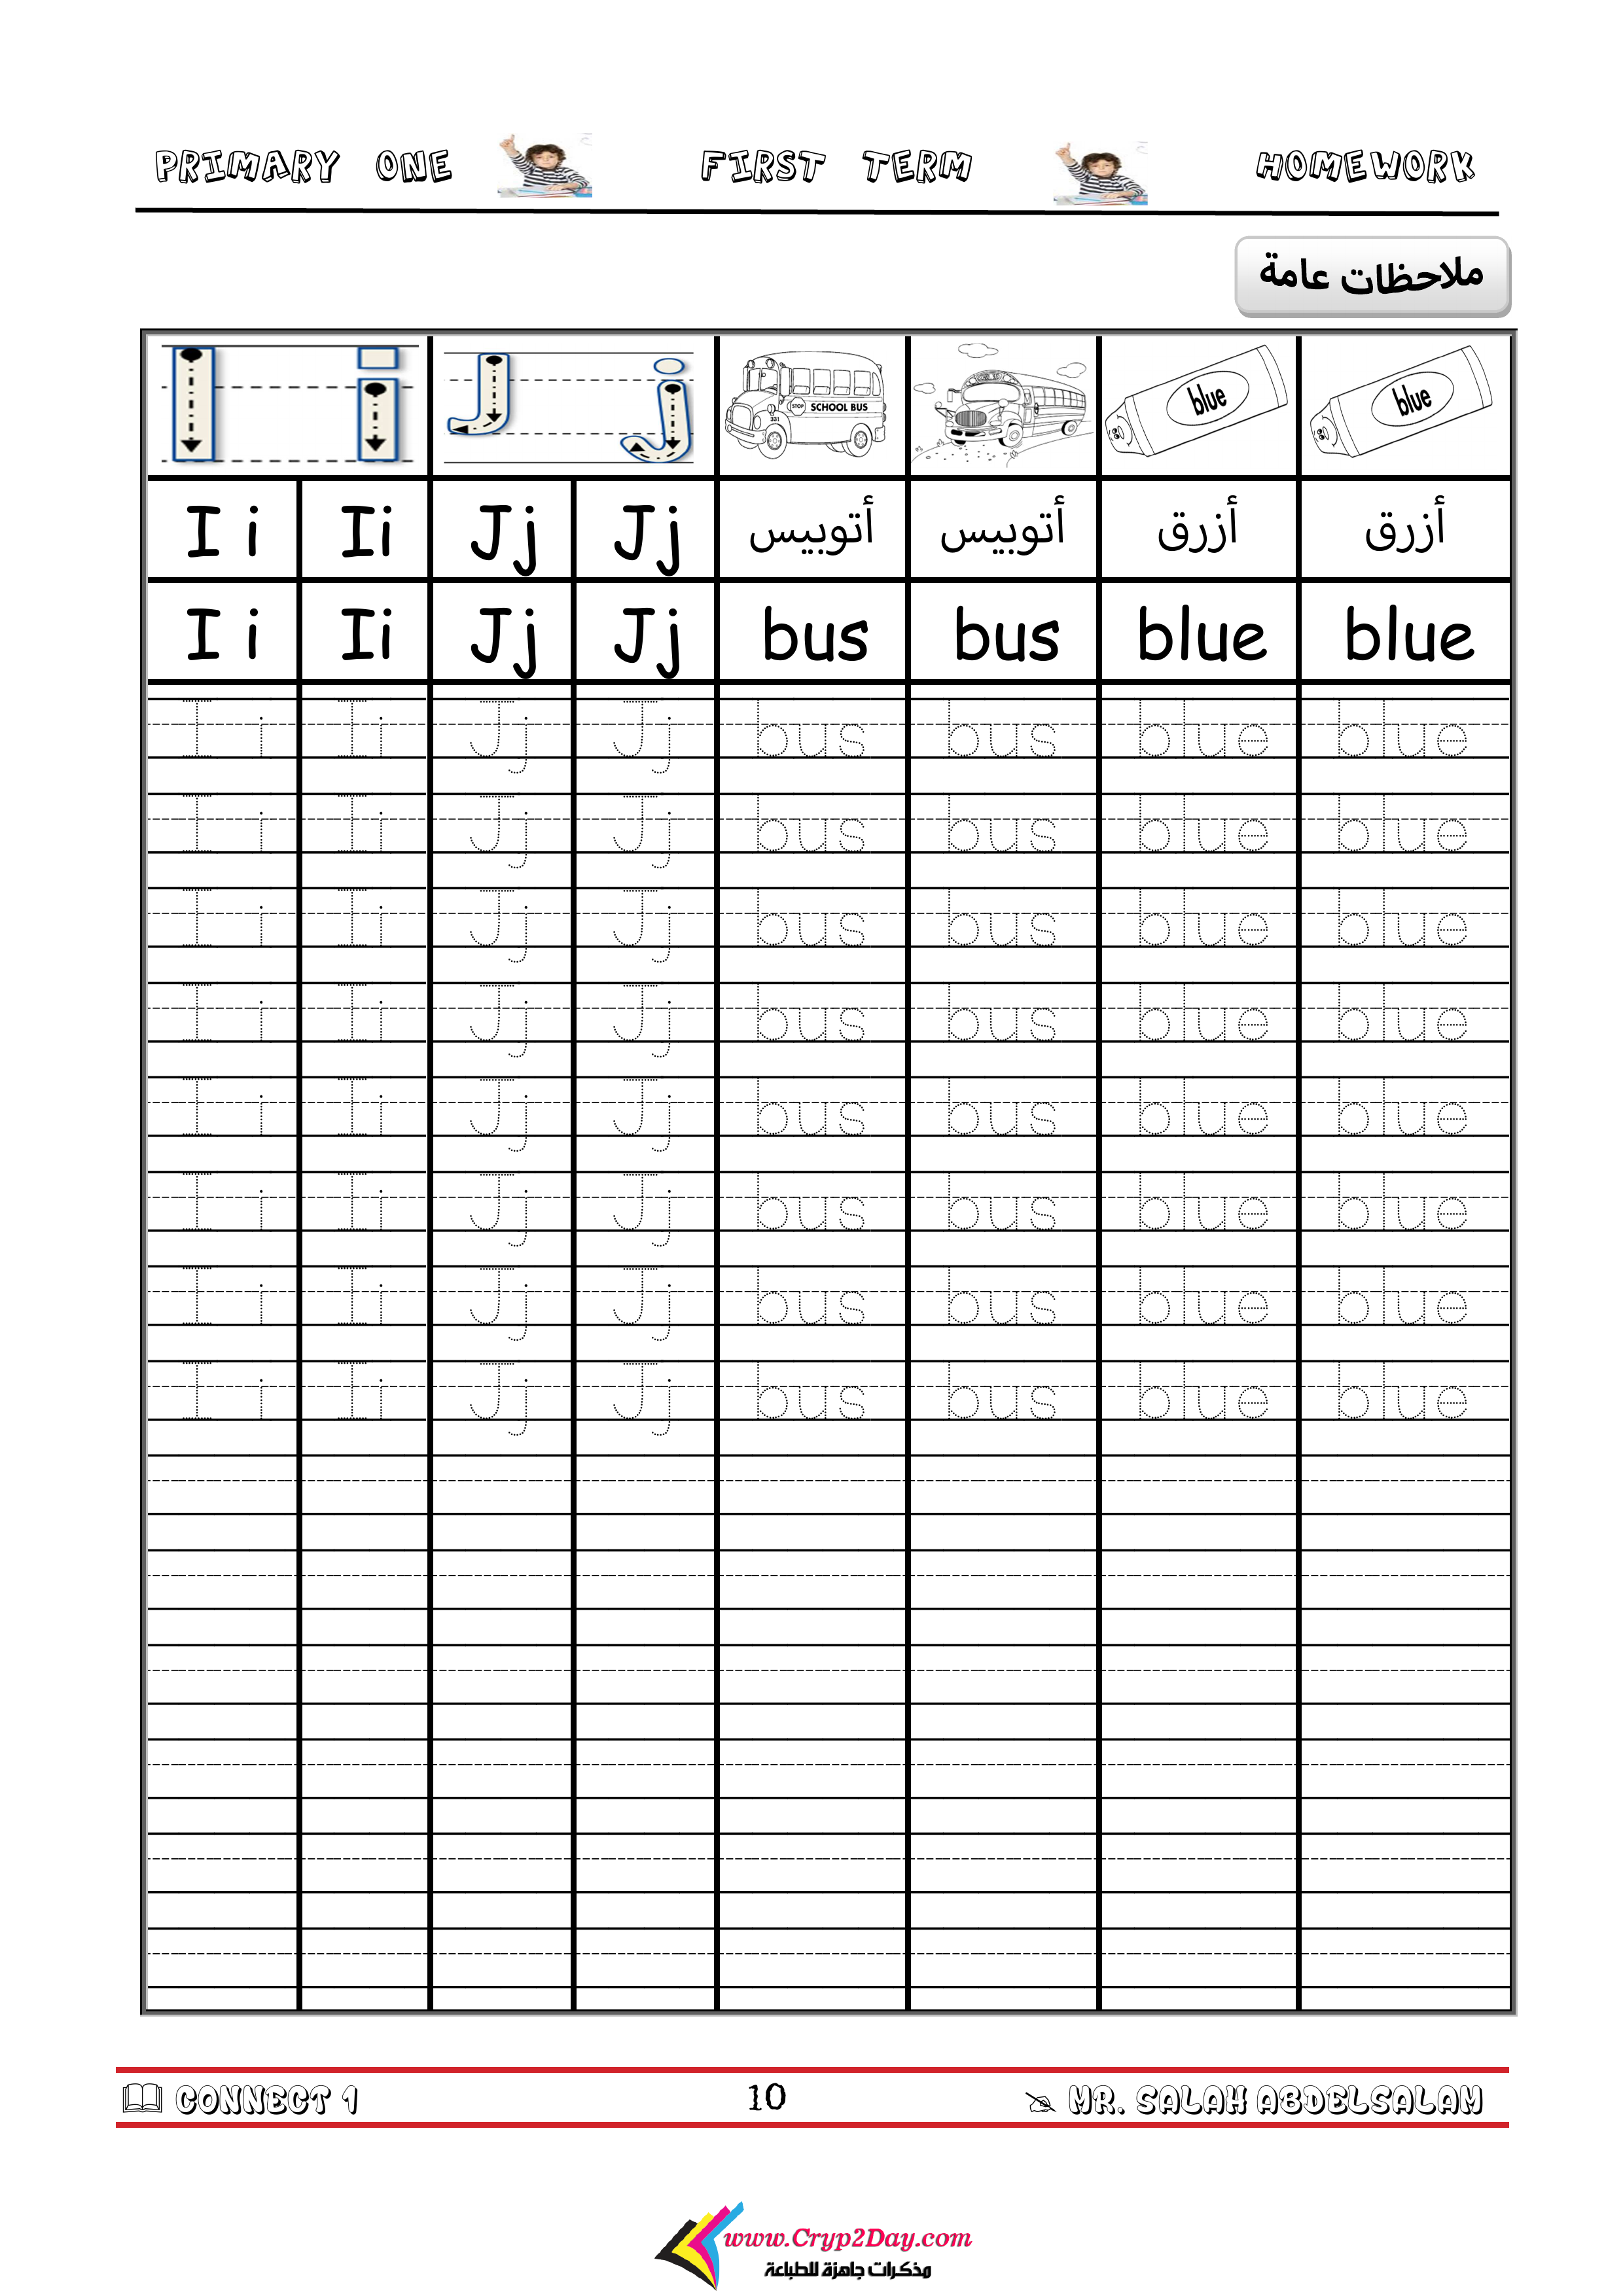 PRIMARY ONE FIRST TERM HOMEWORK
ملاحظات عامة
I i J j STOP SCHOOL BUS 331 SCHOOL BUS blue blue
I i Ii Jj Jj أتوبيس أتوبيس أزرق أزرق
I i Ii Jj Jj bus bus blue blue
I i Ii Jj Jj bus bus blue blue
I i Ii Jj Jj bus bus blue blue
I i Ii Jj Jj bus bus blue blue
I i Ii Jj Jj bus bus blue blue
I i Ii Jj Jj bus bus blue blue
I i Ii Jj Jj bus bus blue blue
I i Ii Jj Jj bus bus blue blue
I i Ii Jj Jj bus bus blue blue
CONNECT 1 10 MR. SALAH ABDELSALAM
www.Cryp2Day.com
مذكرات جاهزة للطباعة